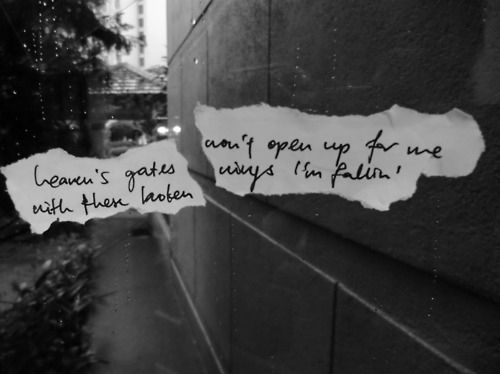 heaven's gates
with these broken
won't open up for me
wings i'm fallin'